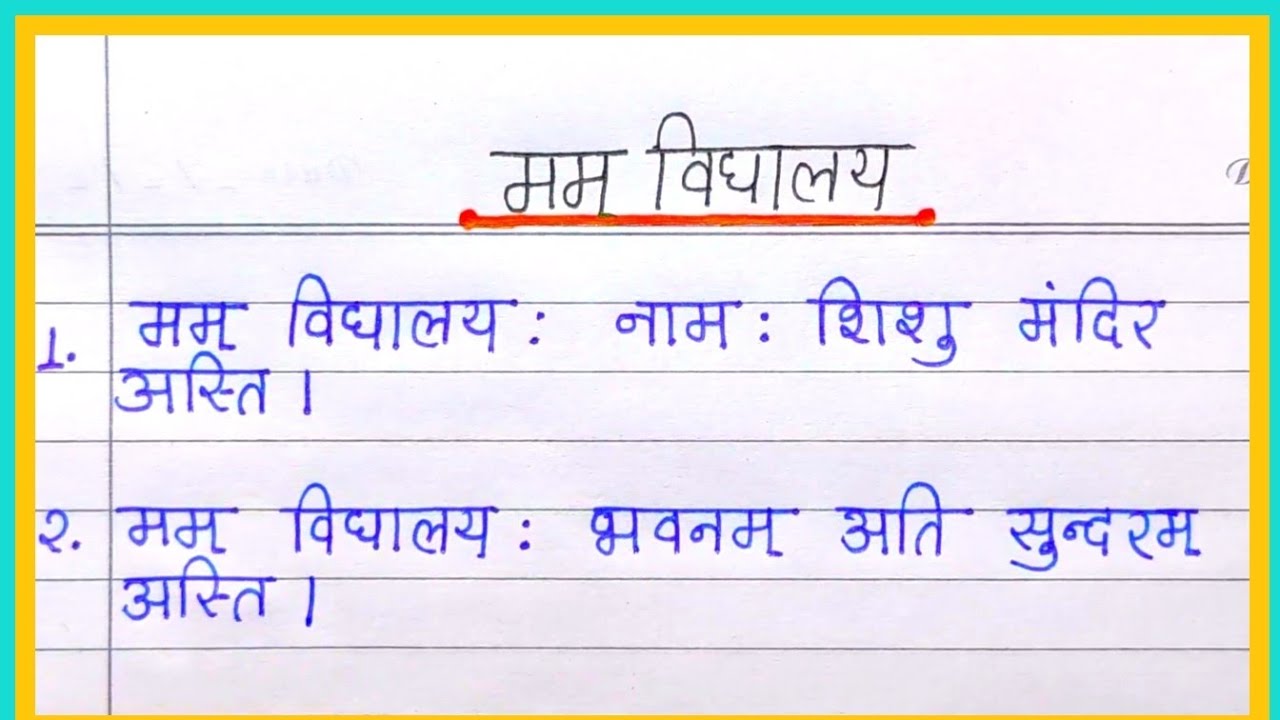 मम् विघालय
1. मम् विघालय: नाम: शिशु मंदिर
अस्ति।
२. मम् विघालय: भवनम् अति सुन्दरम्
अस्ति।